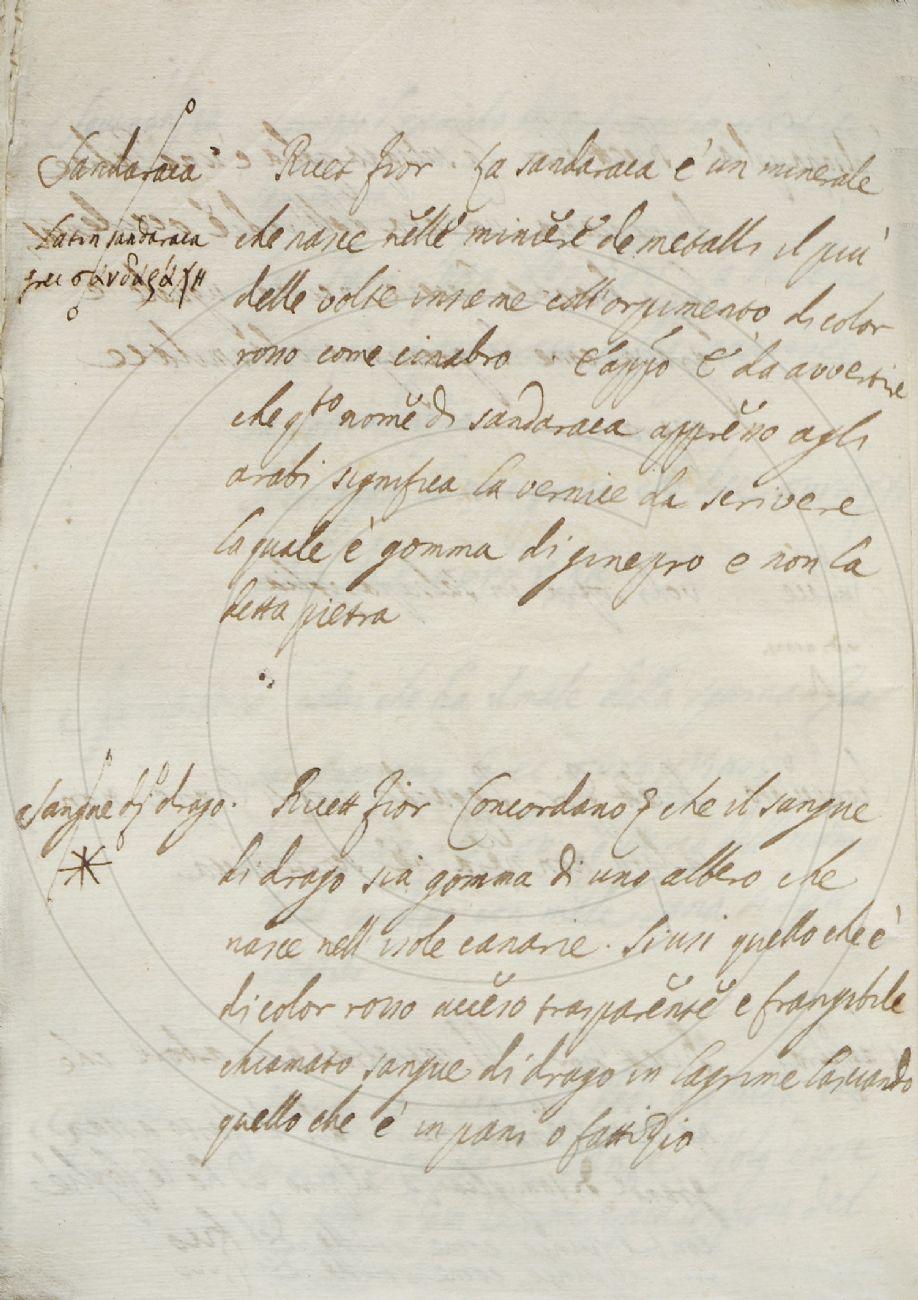 Sandaraca
Latin sandaraca
grec σάνδαράχη
Ricet Fior La sandaraca è un minerale
che nasce nelle miniere de metalli il più
delle volte insieme coll'orpimento di color
rosso come cinabro E appo È da avvertire
che qto nome di sandaraca appresso agli
arabi significa la vernice da scrivere
la quale è gomma di ginepro e non la
detta pietra
Sangue di drago.
Ricett Fior Concordano che il sangue
di drago sia gomma di uno albero che
nasce nell'isole canarie. Si usi quello che è
di color rosso acceso trasparente e frangibile
chiamato sangue di drago in lagrime lasciando
quello che è in pani o fattizio